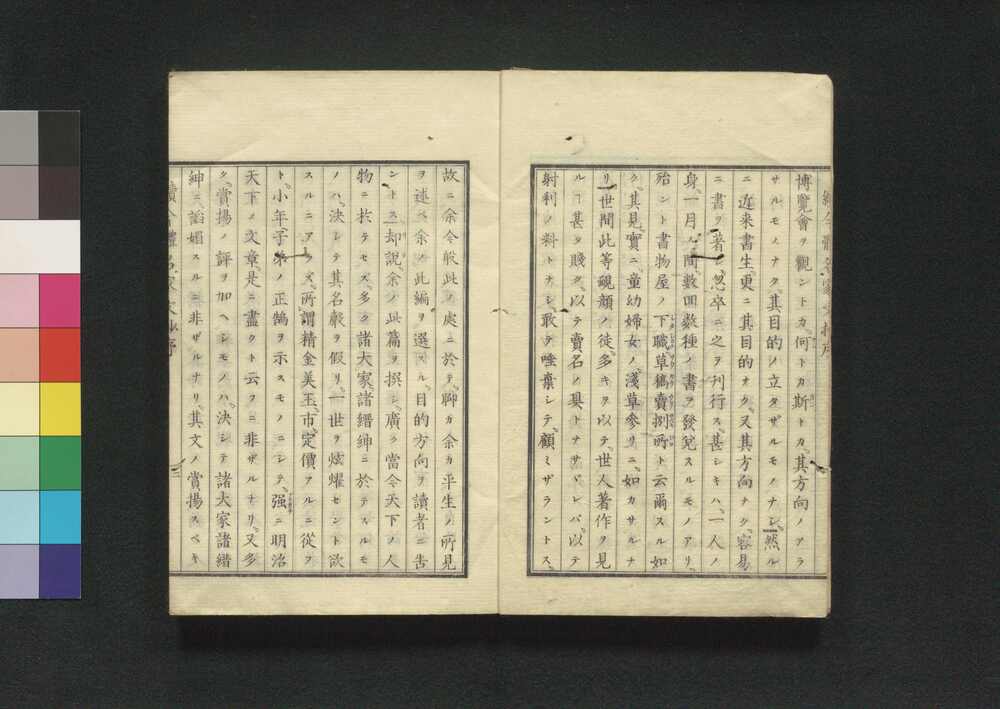 博覽會ヲ觀ントカ、何トカ斯トカ、其方向ノアラ
サルモノナク、其目的ノ立タザルモノナシ、然ル
ニ近来書生、更ニ其目的ナク、又其方向ナク、容易
ニ書ヲ著シ、忽卒ニ之ヲ刊行ス、甚シキハ、一人ノ
身、一月ノ間、數回數種ノ書ヲ發兌スルモノアリ、
殆ント書物屋ノ下職草稿賣捌所ト云爾スル如
ク、其見實ニ、童幼婦女ノ、淺草參リニ、如カサルナ
リ、世間此等靦顔ノ徒、多キヲ以テ、世人著作ヲ見
ルヿ甚タ賤ク、以テ賣名ノ具トナサヾレバ、以テ
射利ノ料トナシ、敢テ唾棄シテ、顧ミザラントス、
故ニ余今般此ノ處ニ於テ、聊カ余カ平生ノ所見
ヲ述ベ、余ノ此編ヲ選スル、目的方向ヲ讀者ニ告
ントス、却說、余ノ此篇ヲ撰シ、廣ク當今天下ノ人
物ニ於テセズ、多ク諸大家、諸縉紳ニ於テスルモ
ノハ、決シテ其名聲ヲ假リ、一世ヲ炫燿セント欲
スルニアラズ、所謂精金美玉、市ニ定價アルニ從ヲ
ト、小年子弟ノ正鵠ヲ示スモノニシテ、强ニ明治
天下ノ文章、是ニ盡クト云フニ非ザルナリ、又多
ク賞揚ノ評ヲ加ヘシモノハ、決シテ諸大家諸縉
紳ニ諂媚スルニ非ザルナリ、其文ノ賞揚スベキ